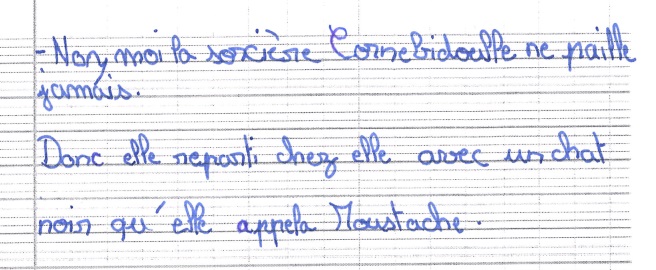 - Non, moi la sorcière Cornebidouille ne paille
jamais.
Donc elle reparti chez elle avec un chat
noir qu'elle appela Moustache.